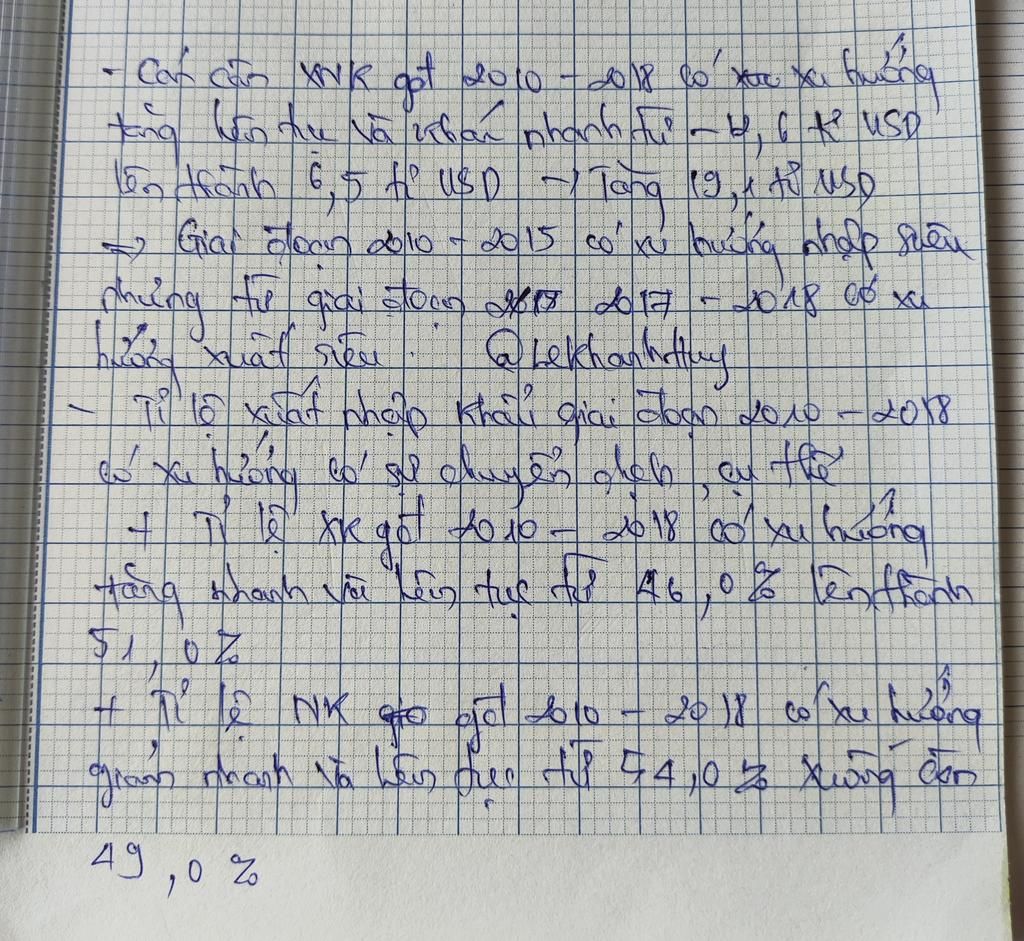 - Cán cân XNK gđt 2010 - 2018 có xu hướng
tăng liên tục và khá nhanh từ - , 6 tỉ USD
lên thành 6,5 tỉ USD → Tăng 19,1 tỉ USD
=> Giai đoạn 2010 - 2015 có xu hướng nhập siêu
nhưng từ giai đoạn 2017 - 2018 có xu
hướng xuất siêu. @LeKhanhHuy
- Tỉ lệ xuất nhập khẩu giai đoạn 2010 - 2018
có xu hướng có sự chuyển dịch, cụ thể
+ Tỉ lệ XK gđt 2010 - 2018 có xu hướng
tăng nhanh và liên tục từ 46,0 % lên thành
51,0 %
+ Tỉ lệ NK gđt 2010 - 2018 có xu hướng
giảm nhanh và liên tục từ 54,0 % xuống còn
49,0 %